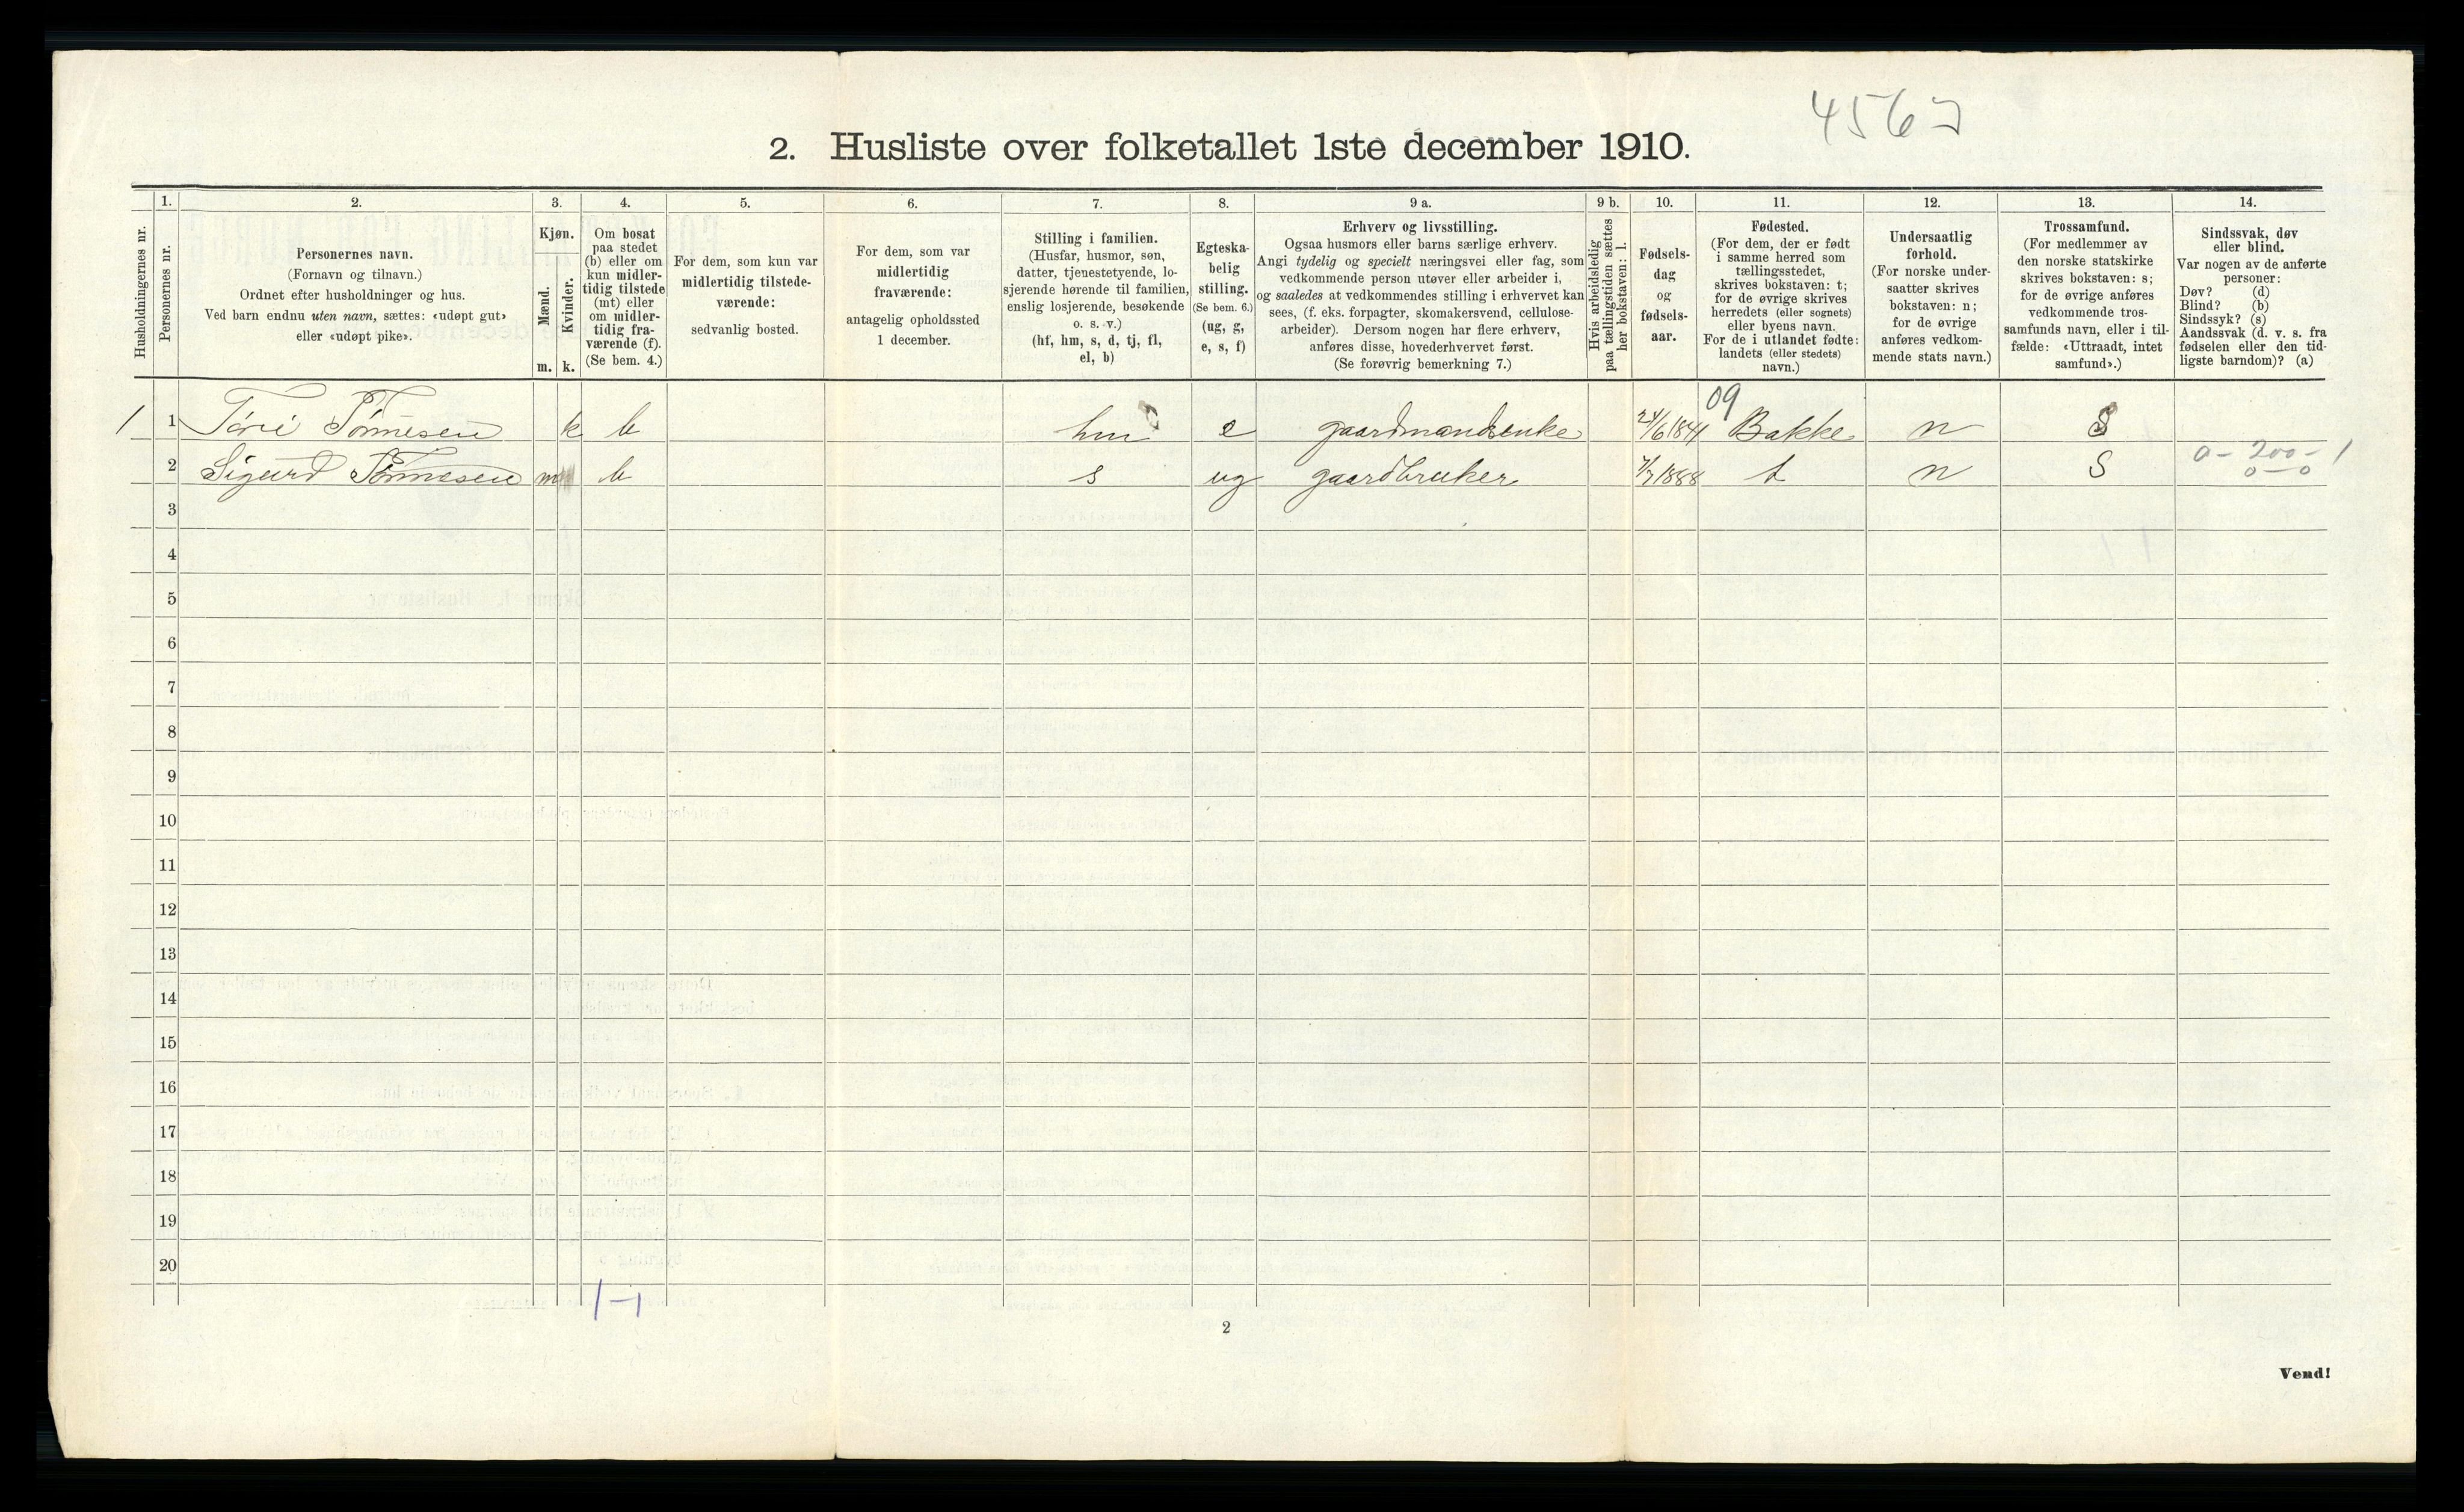 4567
2. Husliste over folketallet 1ste december 1910.
Husholdningernes nr.
1.
Personernes nr.
2.
Personernes navn.
(Fornavn og tilnavn.)
Ordnet efter husholdninger og hus.
Ved barn endnu uten navn, sættes: «udøpt gut»
eller «udøpt pike».
3.
Kjøn.
Mænd.
Kvinder.
m. k.
4.
Om bosat
paa stedet
(b) eller om
kun midler-
tidig tilstede
(mt) eller
om midler-
tidig fra-
værende (f).
(Se bem. 4.)
5.
For dem, som kun var
midlertidig tilstede-
værende:
sedvanlig bosted.
6.
For dem, som var
midlertidig
fraværende:
antagelig opholdssted
1 december.
7.
Stilling i familien.
(Husfar, husmor, søn,
datter, tjenestetyende, lo-
sjerende hørende til familien,
enslig losjerende, besøkende
o. s. v.)
(hf, hm, s, d, tj, fl,
el, b)
8.
Egteska-
belig
stilling.
(Se bem. 6.)
(ug, g,
e, s, f)
9 a.
Erhverv og livsstilling.
Ogsaa husmors eller barns særlige erhverv.
Angi tydelig og specielt næringsvei eller fag, som
vedkommende person utøver eller arbeider i,
og saaledes at vedkommendes stilling i erhvervet kan
sees, (f. eks. forpagter, skomakersvend, cellulose-
arbeider). Dersom nogen har flere erhverv,
anføres disse, hovederhvervet først.
(Se forøvrig bemerkning 7.)
9 b.
Hvis arbeidsledig
paa tællingstiden sættes
her bokstaven: l.
10.
Fødsels-
dag
og
fødsels-
aar.
11.
Fødested.
(For dem, der er født
i samme herred som
tællingsstedet,
skrives bokstaven: t;
for de øvrige skrives
herredets (eller sognets)
eller byens navn.
For de i utlandet fødte:
landets (eller stedets)
navn.)
12.
Undersaatlig
forhold.
(For norske under-
saatter skrives
bokstaven: n;
for de øvrige
anføres vedkom-
mende stats navn.)
13.
Trossamfund.
(For medlemmer av
den norske statskirke
skrives bokstaven: s;
for de øvrige anføres
vedkommende tros-
samfunds navn, eller i til-
fælde: «Uttraadt, intet
samfund».)
14.
Sindssvak, døv
eller blind.
Var nogen av de anførte
personer:
Døv? (d)
Blind? (b)
Sindssyk? (s)
Aandssvak (d. v. s. fra
fødselen eller den tid-
ligste barndom)? (a)
09
1 1 Tøri Tønnesen k b hm e gaardmandsenke 24/6 1841 Bakke n S
0 - 200 - 1
2 Sigurd Tønnesen m b s ug gaardbruker 7/7 1888 t n S 0 - 0
3
4
5
6
7
8
9
10
11
12
13
14
15
16
17
18
19
20
1 - 1
2
Vend!